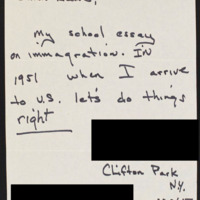 my school essay
on immagration. IN
1951 when I arrive
to U.S. let's do things
right
Clifton Park
N.Y.